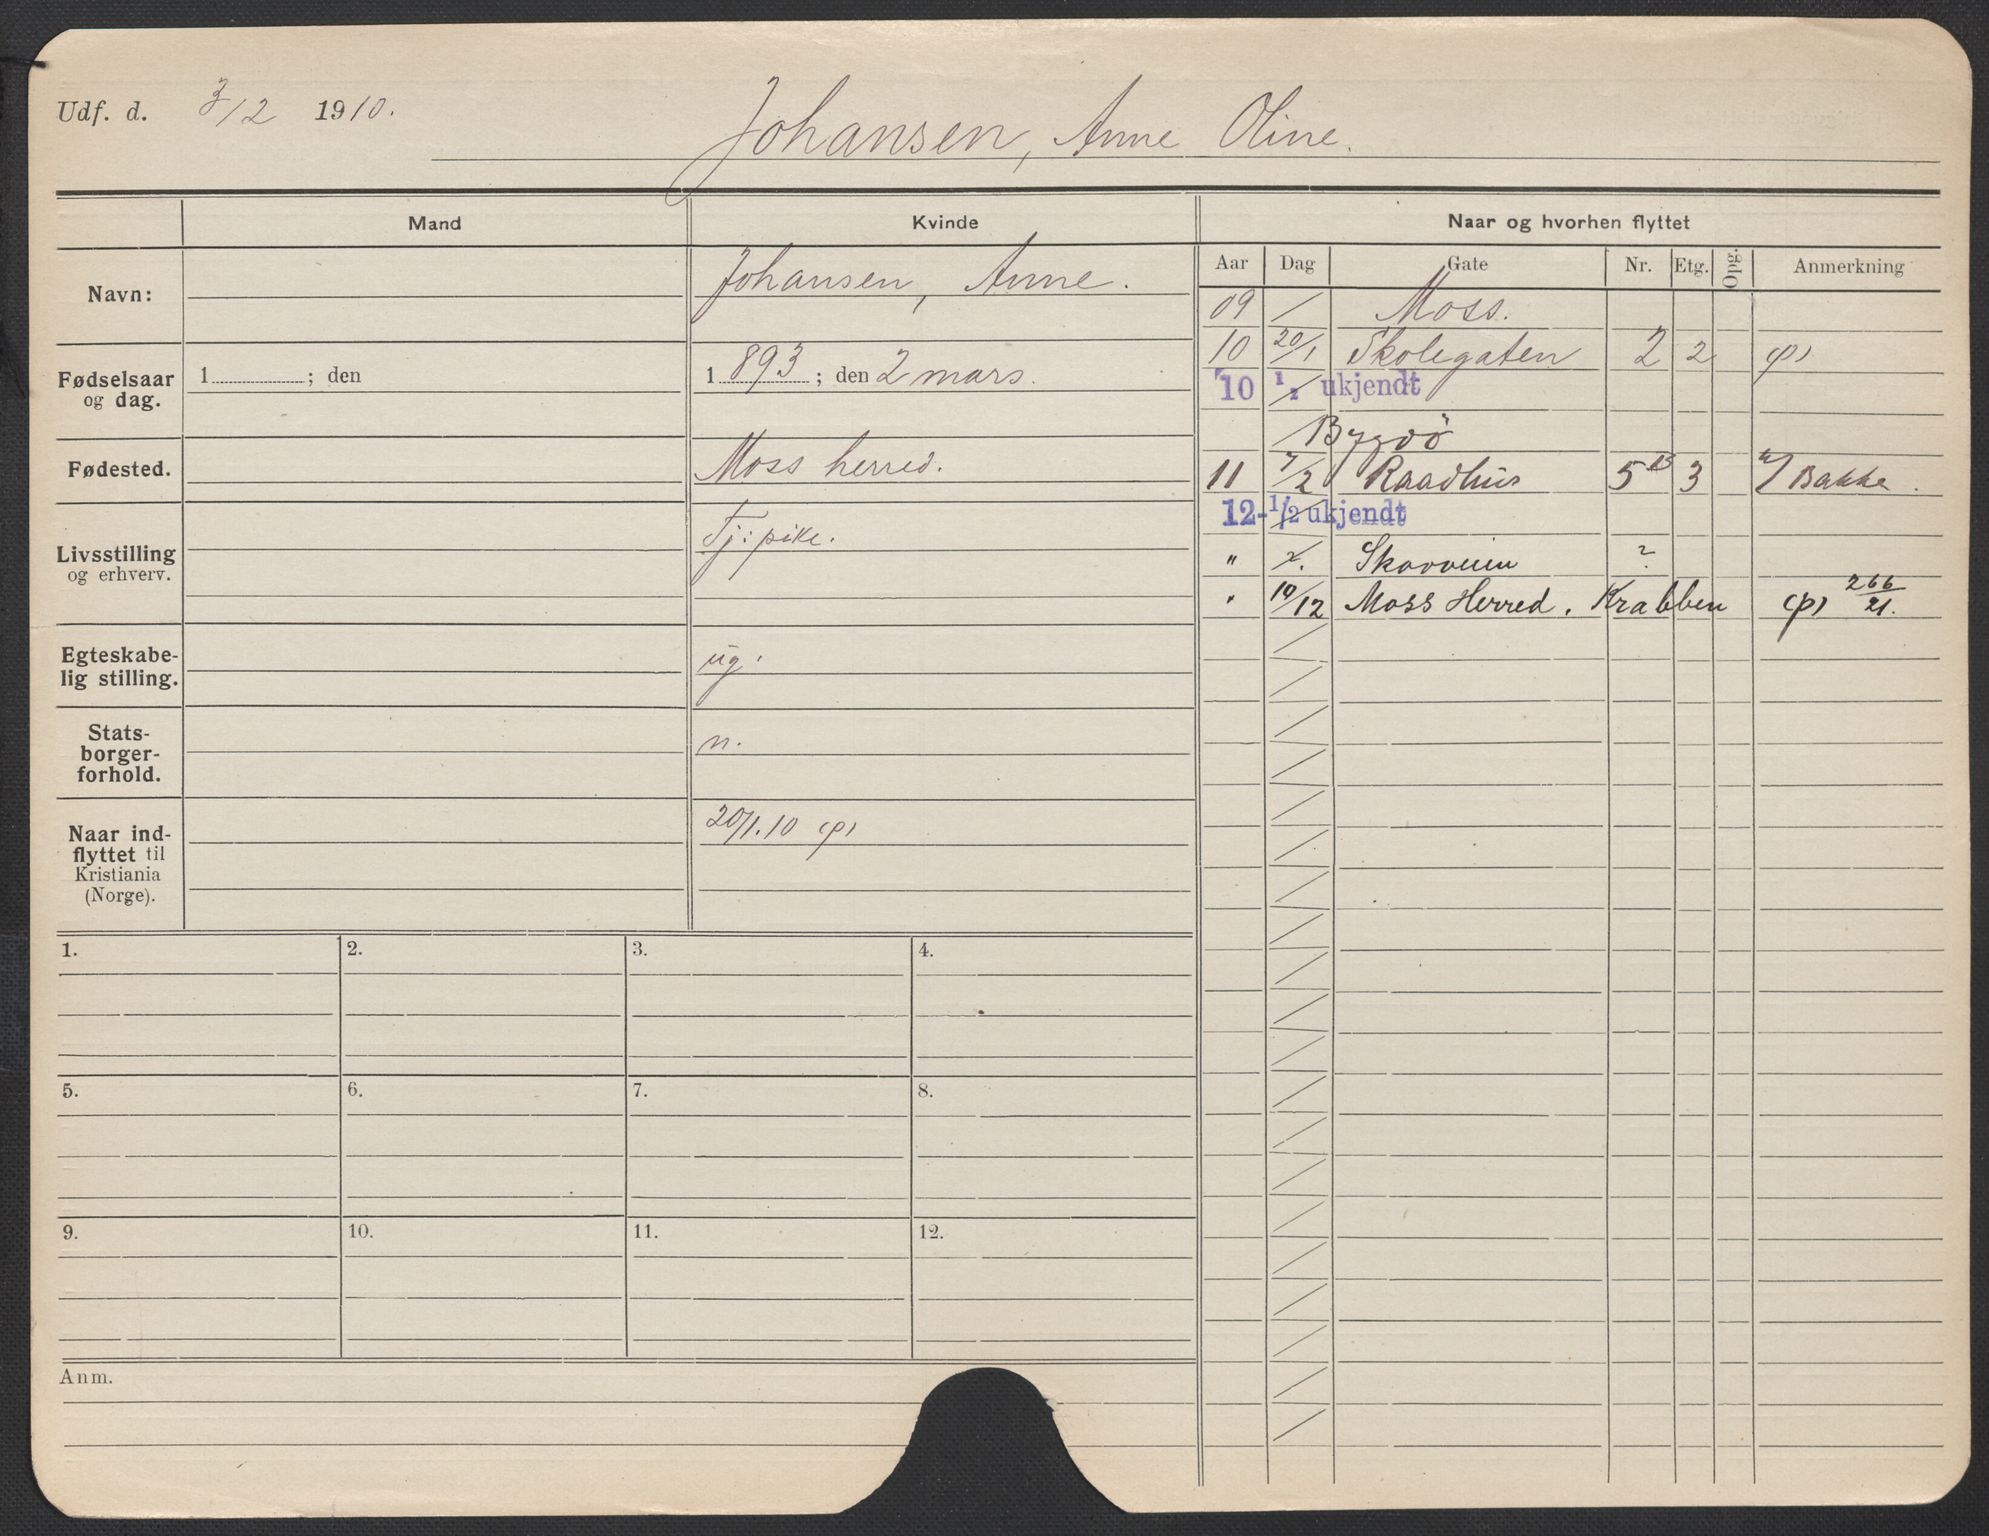 Udf. d. 3/12 1910.
Johansen, Anne Oline.
Mand
Kvinde
Naar og hvorhen flyttet
Aar Dag Gate Nr. Etg. Opg. Anmerkning
Navn:
Johansen, Anne.
Fødselsaar og dag.
1 ; den
1893 ; den 2 mars.
Fødested.
Moss herred.
Livsstilling og erhverv.
Tj: pike.
Egteskabe-
lig stilling.
ug.
Stats-
borger-
forhold.
n.
Naar ind-
flyttet til
Kristiania
(Norge).
20/1.10 (p)
09 / Moss.
10 20/1 Skolegaten 2 2 (p)
'10 1/2 ukjendt
/ Bygdö
11 7/2 Raadhus 5 3 Bakke.
12- 1/2 ukjendt
" 2/. Skovveien ?
" 10/12 Moss Herred. Krabben (p) 266/21.
1. 2. 3. 4.
5. 6. 7. 8.
9. 10. 11. 12.
Anm.